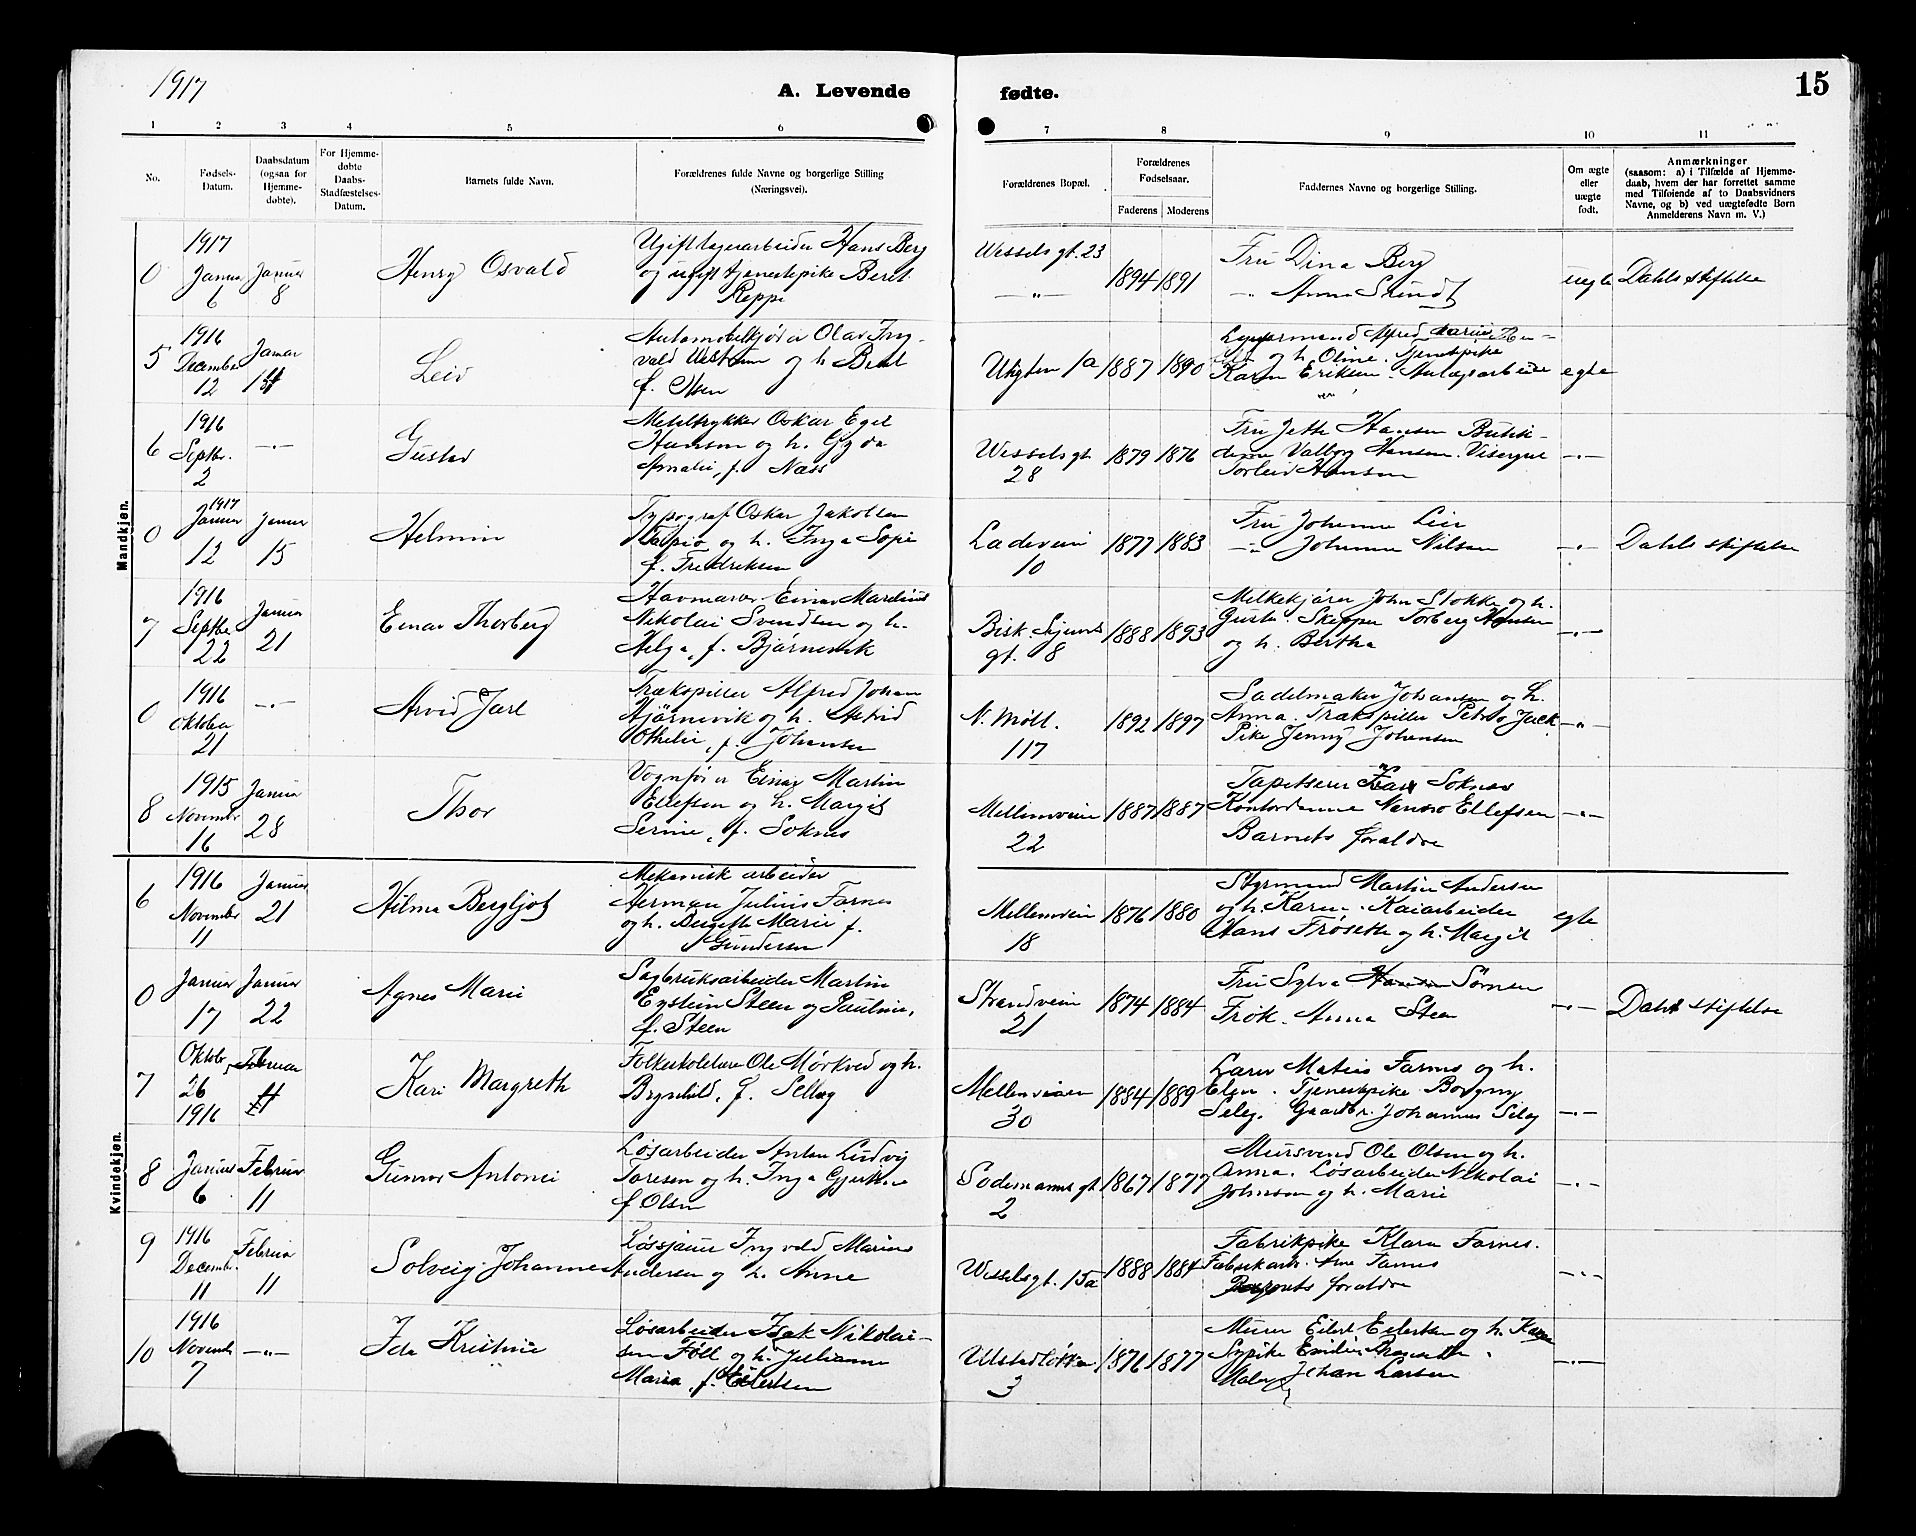 1917
A. Levende fødte.
15
1 2 3 4 5 6 7 8 9 10 11
No.
Fødsels-
Datum.
Daabsdatum
(ogsaa for
Hjemme-
døbte).
For Hjemme-
døbte
Daabs-
Stadfæstelses-
Datum.
Barnets fulde Navn.
Forældrenes fulde Navne og borgerlige Stilling
(Næringsvei).
Forældrenes Bopæl.
Forældrenes
Fødselsaar.
Faderens Moderens
Faddernes Navne og borgerlige Stilling.
Om ægte
eller
uægte
født.
Anmærkninger
(saasom: a) i Tilfælde af Hjemme-
daab, hvem der har forrettet samme
med Tilføiende af to Daabsvidners
Navne, og b) ved uægtefødte Børn
Anmelderens Navn m. V.)
Mandkjøn.
0
1917
Januar
6
Januar
8
Henry Osvald
Ugift lagerarbeider Hans Berg
og ugift tjenestepike Beret
Reppe
Wessels gt. 23
—"—
1894 1891
Fru Dina Berg
-"- Anna
uegte
Dahls stiftelse
5
1916
December
12
Januar
14
Leiv
Automobilkjører Olav Ing-
vald og h. Beret
f. Olsen
1a
1887 1890
Alfred Marius
og h. Oline. Tjenestpike
Karen Eriksen.
egte
6
1916
Septbr.
2
—"—
Gustav
Metaltrykker Oskar Egil
Hansen og h. Gyda
Amalie, f. Næss
Wessels gt.
28
1879 1876
Fru Hansen Butik-
dame Valborg Hansen. Visergut
Torleiv Hansen
—"—
0
1917
Januar
12
Januar
15
Helmin
Typograf Oskar Jakobsen
og h. Inga Sofie
f. Fredriksen
Ladeveien
10
1877 1883
Fru Johanne Lein
-"- Johanne Nilsen
—"—
Dahls stiftelse
7
1916
Septbr
22
Januar
21
Einar Thorberg
Havnearb. Einar Marelius
Nikolai Svendsen og h.
Helga, f. Bjørnevik
Bisk. Sigurds
gt. 8
1888 1893
Melkekjører John Stokke og h.
Gusta. Skipper Torberg Hansen
og h. Bertha
—"—
0
1916
Oktober
21
—"—
Arvid Jarl
Trækspiller Alfred Johan
Bjørnevik og h. Astrid
Othelie, f. Johansen
N. Møll.
117
1892 1897
Sadelmaker Johansen og h.
Anna. Trækspiller Petro Jack
Pike Jenny Johansen
—"—
8
1915
November
16
Januar
28
Thor
Vognfører Einar Martin
Ellefsen og h. Margit
Serine, f. Soknes
Mellemveien
22
1887 1887
Tapetserer Soknes
Kontordame Nanna Ellefsen
Barnets foraldre
—"—
Kvindekjøn.
6
1916
November
11
Januar
21
Hilma Bergljot
Mekanisk arbeider
Herman Julius Farnes
og h. Birgitte Marie f.
Gundersen
Mellemveien
18
1876 1880
Styrmand Martin Andersen
og h. Karen. Kaiarbeider
Hans Frøseth og h. Margit
egte
0
Januar
17
Januar
22
Agnes Marie
Sagbruksarbeider Martin
Eystein Steen og Pauline,
f. Steen
Strandveien
21
1874 1884
Fru Sylva Sørnsen
Frøk. Anna Steen
—"—
Dahls stiftelse
7
Oktober
26
1916
Februar
11
Kari Margreth
Folkeskolelærer Ole Mørkved og h.
Brynhild, f. Selleg
Mellemveien
30
1884 1889
Lærer Mathis Farnes og h.
Elen. Tjenestpike Borgny
Seleg. Gaardbr. Johannes Seleg
—"—
8
Januar
6
Februar
11
Gunvor Antonie
Løsarbeider Anton Ludvig
Toresen og h. Inga Gjertine
f Olsen
Sodemanns gt.
2
1867 1877
Mursvend Ole Olsen og h.
Anna. Løsarbeider Nikolai
Johnsen og h. Marie
—"—
9
1916
Decemb.
11
Februar
11
Solveig Johanne
Løssjauer Ingvald Marius
Andersen og h. Anne
Wesselsgt. 15a
1888 1884
Fabrikpike Klara Farnes.
Fabrikarb. Arne Farnes
Barnets foraldre
—"—
10
1916
Novemb
7
—"—
Ida Kristine
Løsarbeider Isak Nikolai-
sen Föll og h. Julianne
Maria, f. Eilertsen
Ulstadløkken
3
1876 1877
Murer Eilert Eilertsen og h. Karen
Sypike Emilie
Maler Johan Larsen
—"—